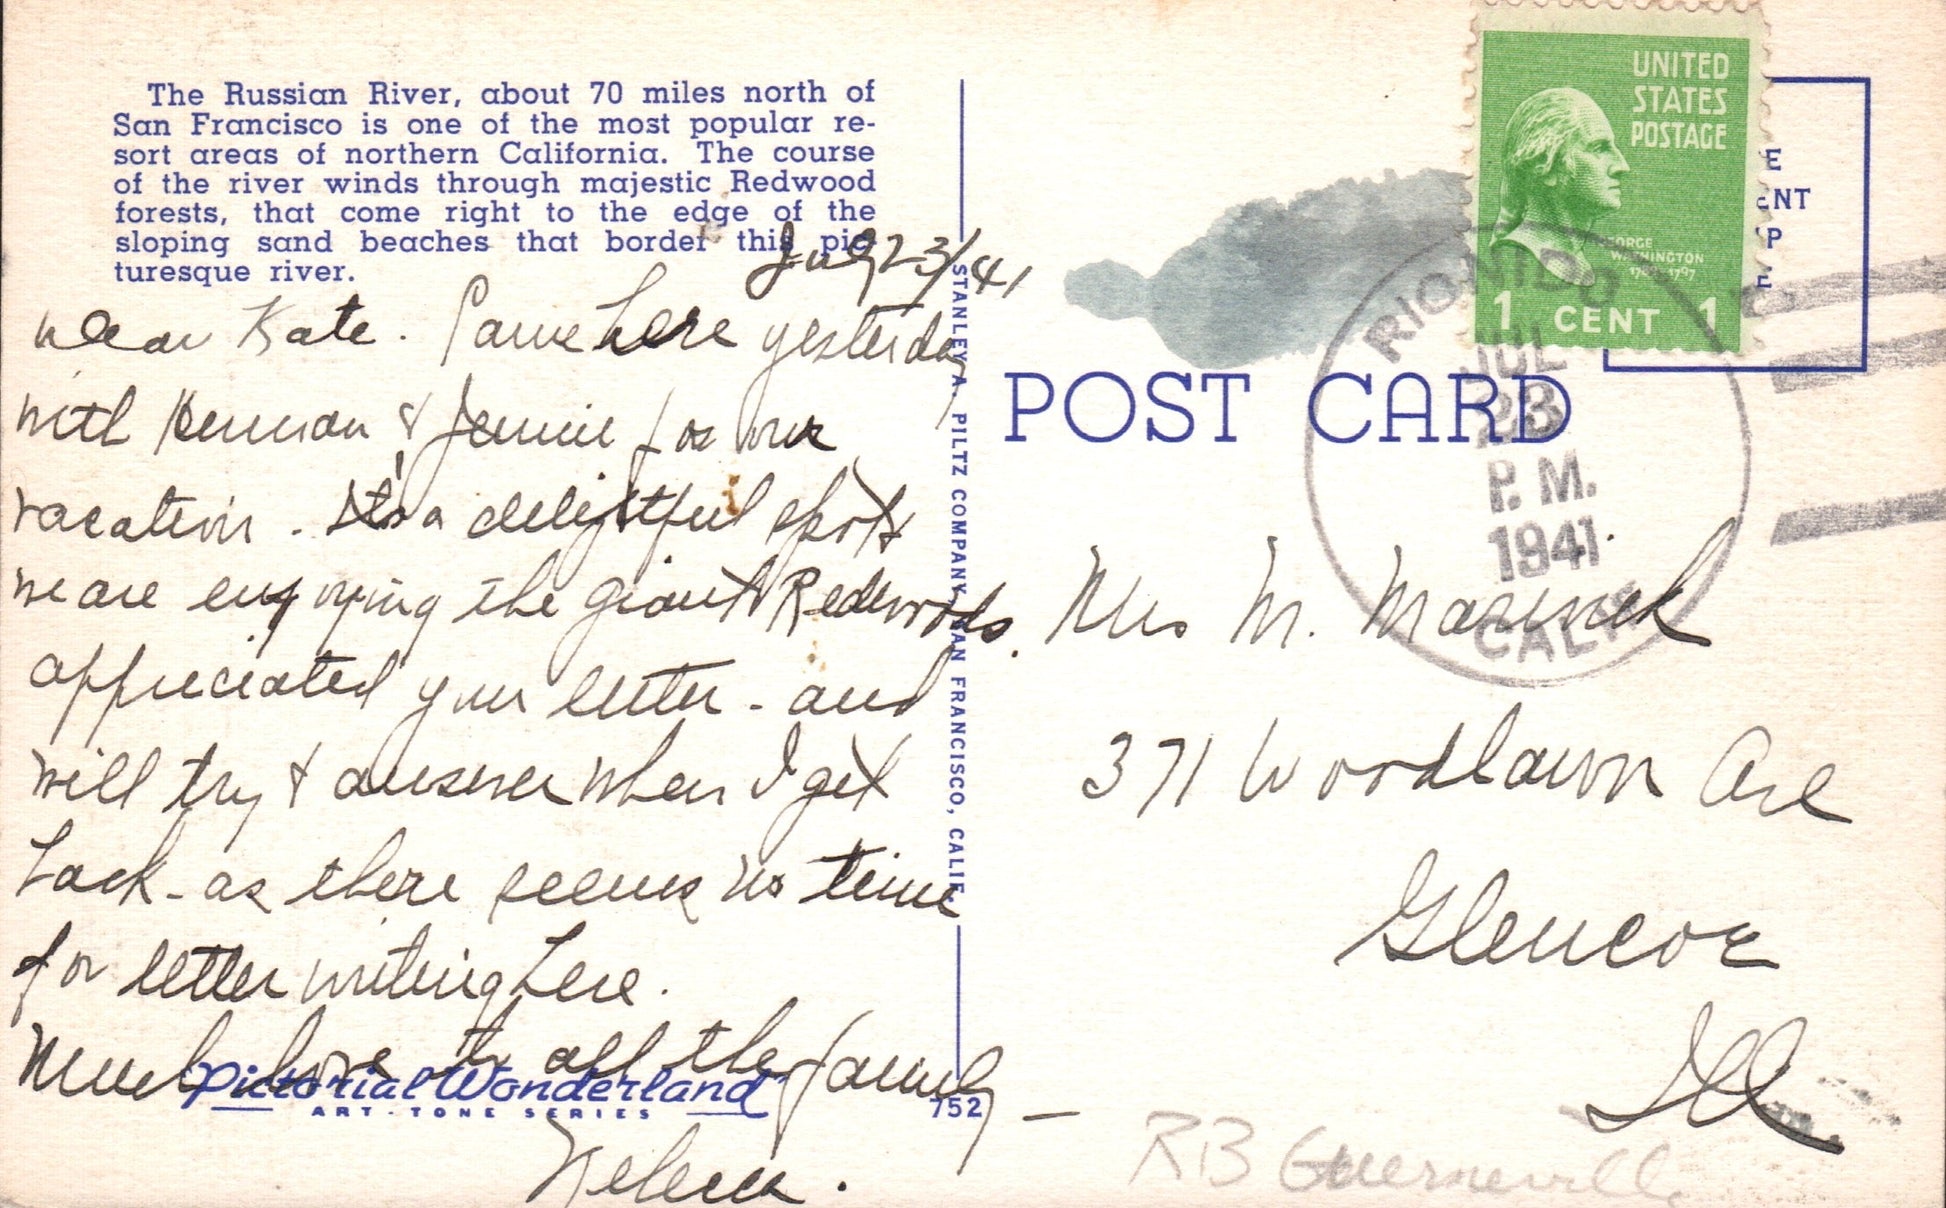 The Russian River, about 70 miles north of
San Francisco is one of the most popular re-
sort areas of northern California. The course
of the river winds through majestic Redwood
forests, that come right to the edge of the
sloping sand beaches that border this pic-
turesque river.
July 23/41
Dear Kate. Came here yesterday
with Herman & Jennie for our
vacation. It's a delightful spot &
we are enjoying the giant Redwoods.
appreciated your letter - and
will try & answer when I get
back - as there seems no time
for letter writing here.
Much love to all the family -
Helen.
Pictorial Wonderland
ART-TONE SERIES
752
STANLEY A. PILTZ COMPANY, SAN FRANCISCO, CALIF.
UNITED
STATES
POSTAGE
GEORGE
WASHINGTON
1 CENT 1
E
ENT
P
E
POST CARD
RIO NIDO
JUL
23
P.M.
1941
CALIF.
Mrs M.
371 Woodlawn Ave
Glencoe
Ill
RB Guerneville